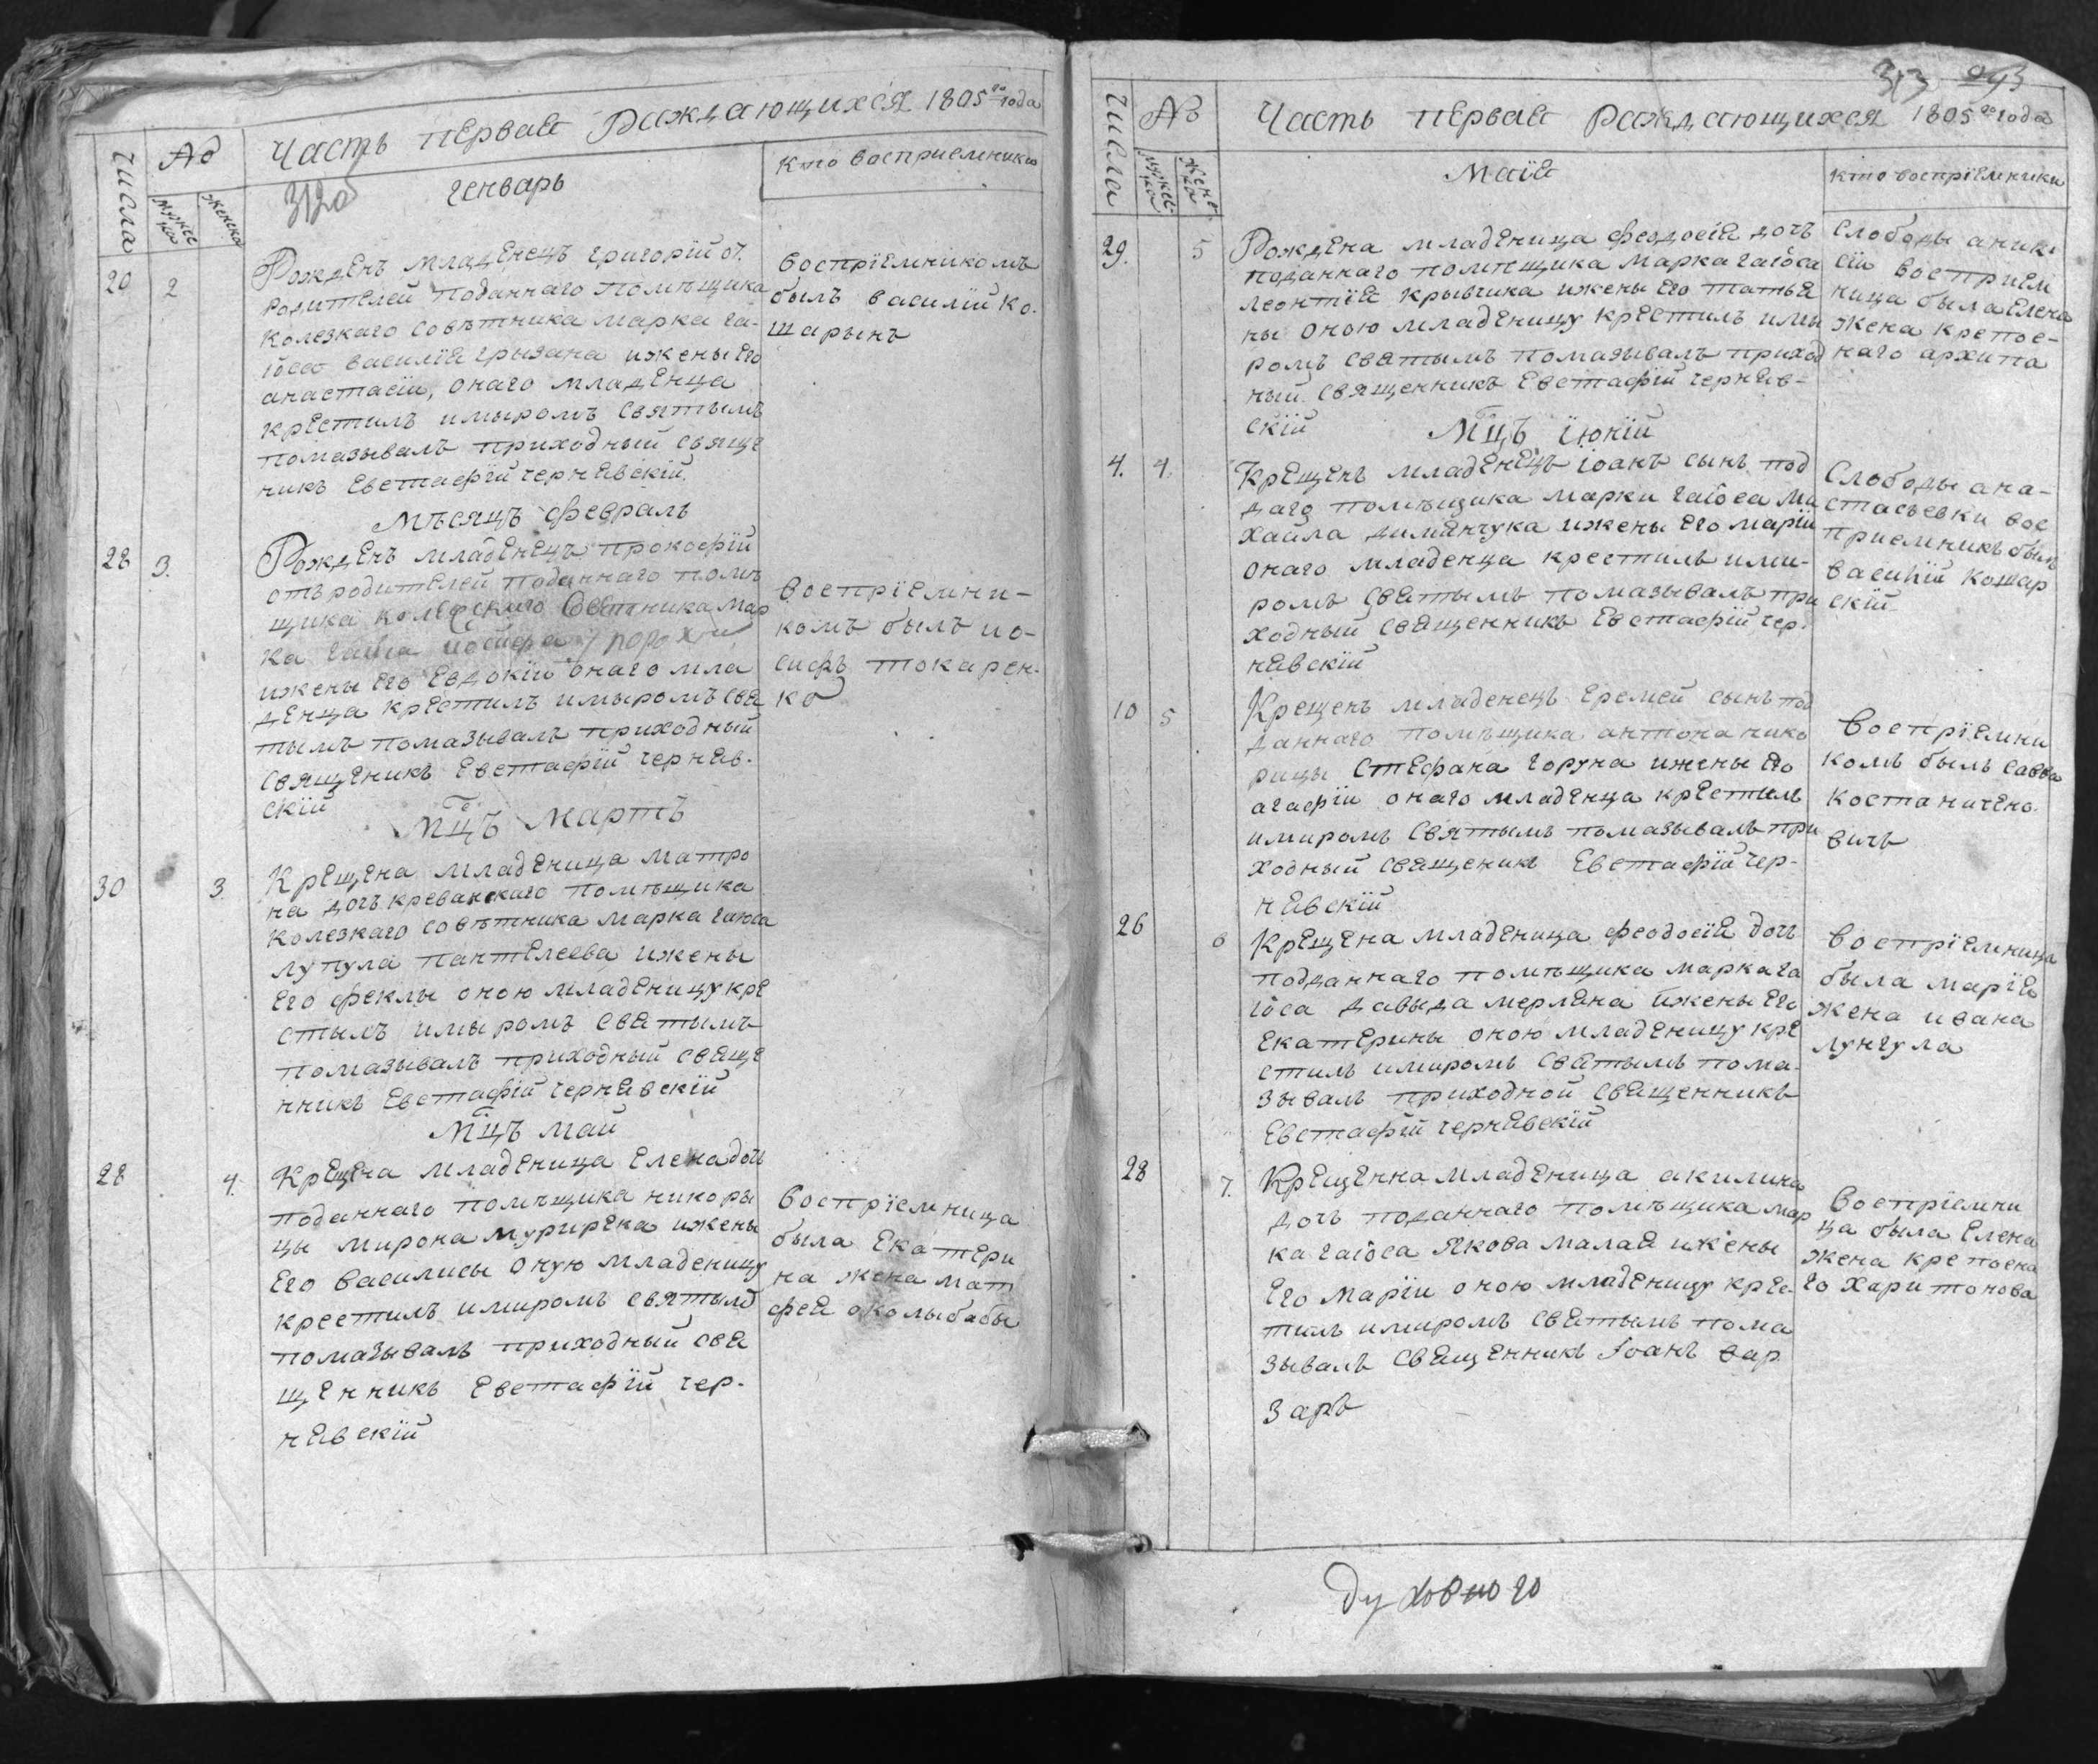 Часть первая Раждающихся 1805го года
Числа
№
мужеска
женска
312об
генварь
кто восприемники
20 2
Рожденъ младенецъ григорїй от
родителей поданнаго помѣщика
колезкаго совѣтника марка га-
їоса василїя грызана ижены его
анастасїи, онаго младенца
крестилъ имыромъ святымъ
помазывалъ приходный свяще
никъ Евстафїй чернявскїй
воспрїемникомъ
былъ василїй ко.
шарынъ
мѣсяцъ февраль
28 3.
Рожденъ младенецъ прокофїй
отъ родителей поданнаго помѣ
щика колезского Советника мар
ка
ижены его Евдокїи онаго мла
денца крестилъ имыромъ свя
тымъ помазывалъ приходный
священикъ Евстафїй черняв-
скїй
воспрїемни-
комъ былъ ио-
сифъ токарен-
ко
Мцъ мартъ
30 3.
Крещена младеница матро
на дочъ помѣщика
колезкаго совѣтника марка гаюса
лупула пантелеева ижены
его феклы оною младеницу кре
стылъ имыромъ святымъ
помазывалъ приходный свяще
нникъ Евстафїй чернявскїй
Мцъ май
28 4.
Крещена младеница Елена дочь
поданнаго помѣщика никоры
цы мирона ижены
его василисы оную младеницу
крестилъ имиромъ святымъ
помазывалъ приходный свя
щенникъ Евстафїй чер-
нявскїй
воспрїемница
была Екатери
на жена мат
фея околыбабы
313 243
Числа
№
мужеска
женска
Часть первая раждающихся 1805го года
маїя
кто воспрїемники
29. 5
Рождена младеница феодосїя дочъ
поданнаго помѣщика марка гаїоса
леонтїя крывчика ижены его татья
ны оною младеницу крестилъ имы
ромъ святымъ помазывалъ приход
ный священникъ Евстафїй черняв-
скїй
слободы
восприем
ница была Елена
жена крепос-
наго архипа
Мцъ їюнїй
4. 4.
Крещенъ младенецъ іоанъ сынъ под
даго помѣщика марки гаїоса ми
хайла димянчука ижены его марїи
онаго младенца крестилъ ими-
ромъ святымъ помазывалъ при
ходный священникъ Евстафїй чер-
нявскїй
Слободы ана-
стасьевки вос
приемникъ былъ
василїй кошар
скїй
10 5
Крещенъ младенецъ Еремей сынъ под
даннаго помѣщика антона нико
рицы Стефана горуна ижены его
агафїи онаго младенца крестилъ
имиромъ святымъ помазывалъ при
ходный священикъ Евстафїй чер-
нявскїй
воспрїемни
комъ былъ савва
костаничено-
вичъ
26 6
Крещена младеница феодосїя дочъ
подданнаго помѣщика марка га
їоса давыда мерляна ижены его
Екатерины оною младеницу кре
стилъ имиромъ святымъ пома-
зывалъ приходной священникъ
Евстафїй чернявскїй
воспрїемница
была марїя
жена ивана
лунгула
28 7.
Крещенна младеница акилина
дочъ поданнаго помѣщика мар
ка гаїоса Якова малая ижены
его марїи оною младеницу крес-
тилъ имиромъ святымъ пома
зывалъ священникъ Іоанъ вар
заръ
воспрїемни
ца была Елена
жена крепосна
го харитонова
духовного